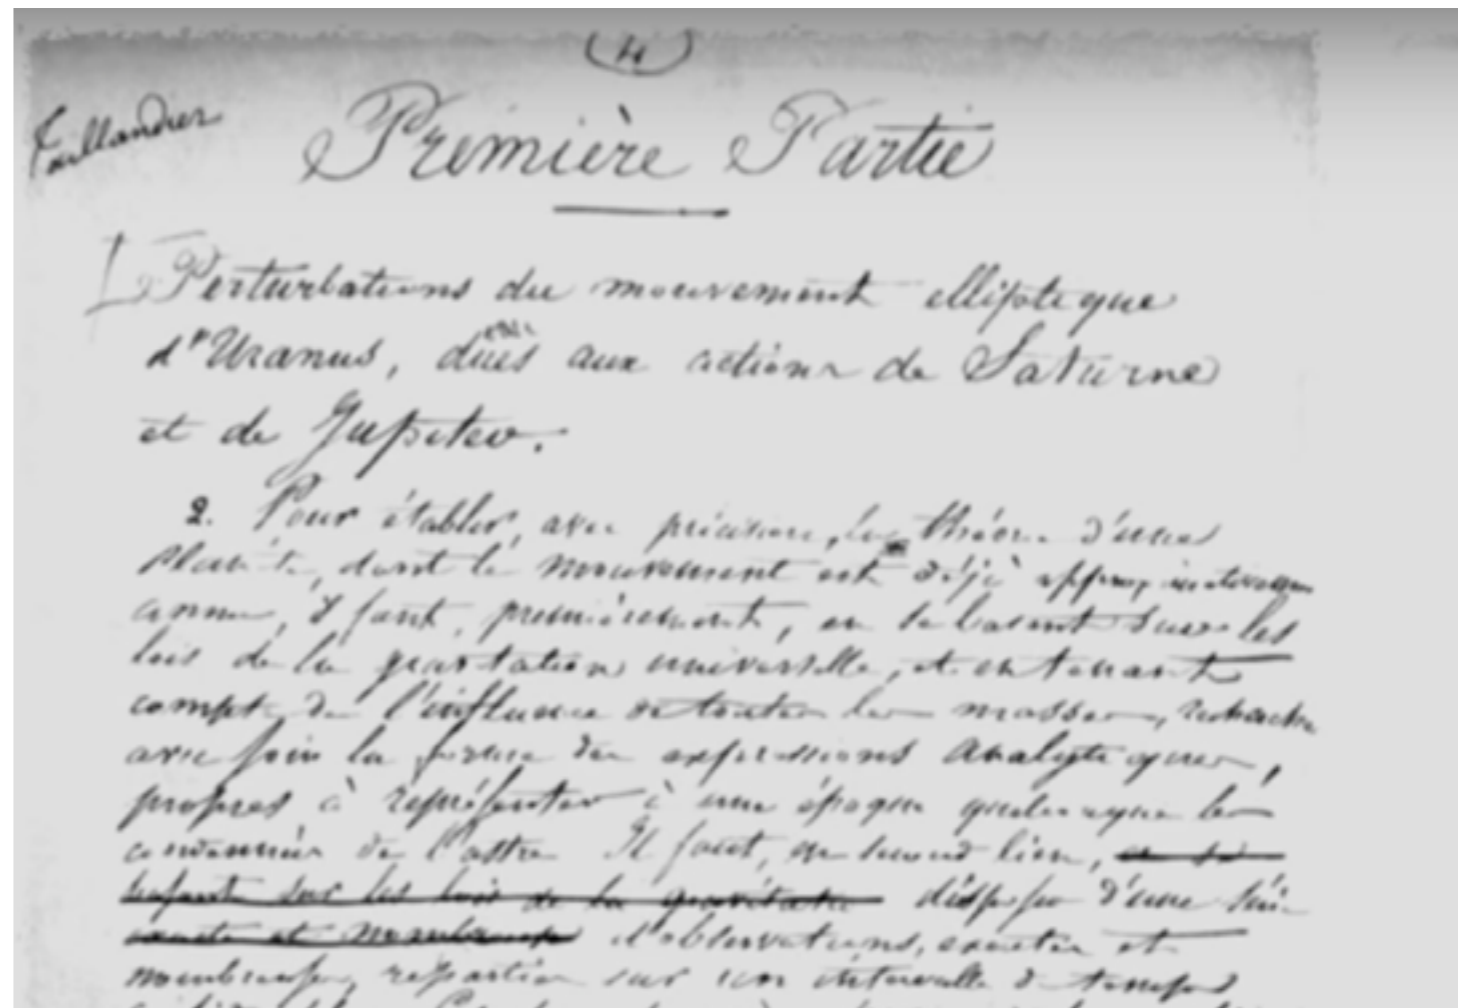 (4)
Taillandier
Première Partie
Perturbations du mouvement elliptique
d'Uranus, dues aux actions de Saturne
et de Jupiter.
2. Pour établir, avec précision, la théorie d'une
planète, dont le mouvement est déjà approximativement
connu, il faut, premièrement, en se basant sur les
lois de la gravitation universelle, et en tenant
compte de l'influence de toutes les masses, rechercher
avec soin la forme des expressions analytiques,
propres à représenter à une époque quelconque les
coordonnées de l'astre Il faut, en second lieu, en se
basant sur les lois de la gravitation disposer d'une série
exacte et nombreuse d'observations, exactes et
nombreuses, reparties sur un intervalle de temps